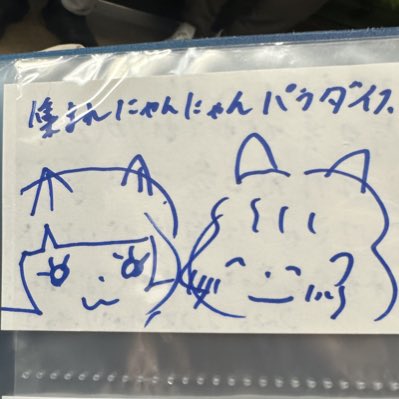 集まれにゃんにゃんパラダイス